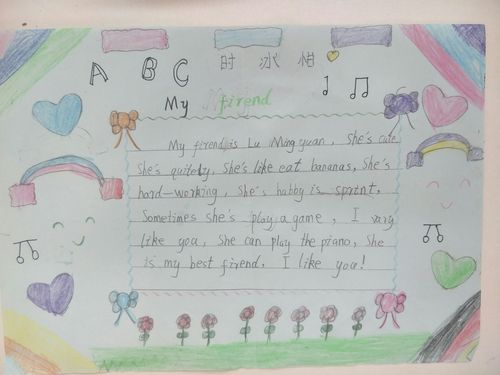 A B C 时冰柑
My firend
My firend is Lu Mingyuan, She's cute
She's quitely, She's like eat bananas, She's
hard-working, She's habby is sprint,
Sometimes she's play a game, I vary
like you, She can play the piano, She
is my best firend, I like you!